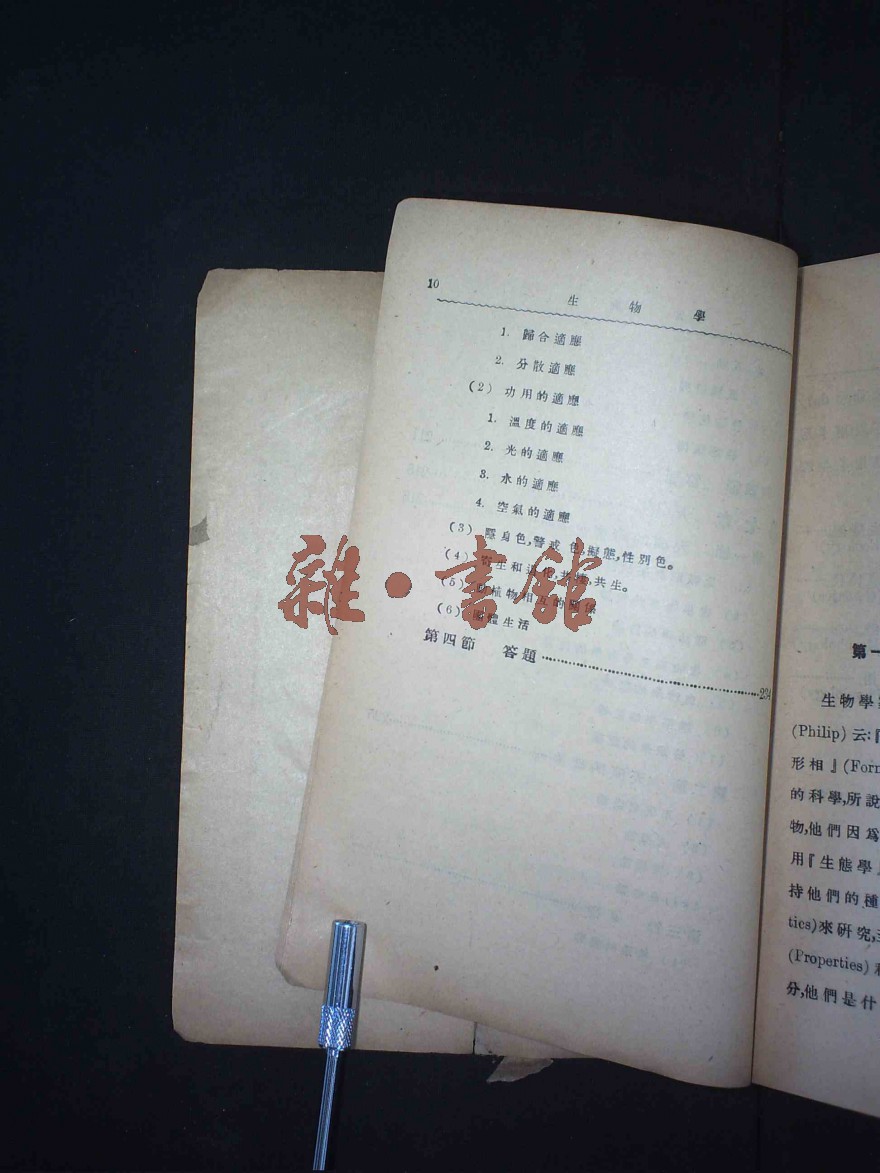 10
生物學
1. 歸合適應
2. 分散適應
(2) 功用的適應
1. 溫度的適應
2. 光的適應
3. 水的適應
4. 空氣的適應
(3) 隱身色,警戒色,擬態,性別色。
(4) 寄生和退化,共棲,共生。
(5) 動植物相互的關係
(6) 團體生活
第四節 答題……234
雜·書館
第一
生物學
(Philip)云:『
形相』(Form
的科學,所說
物,他們因爲
用『生態學』
持他們的種
tics)來研究,
(Properties)和
分,他們是什